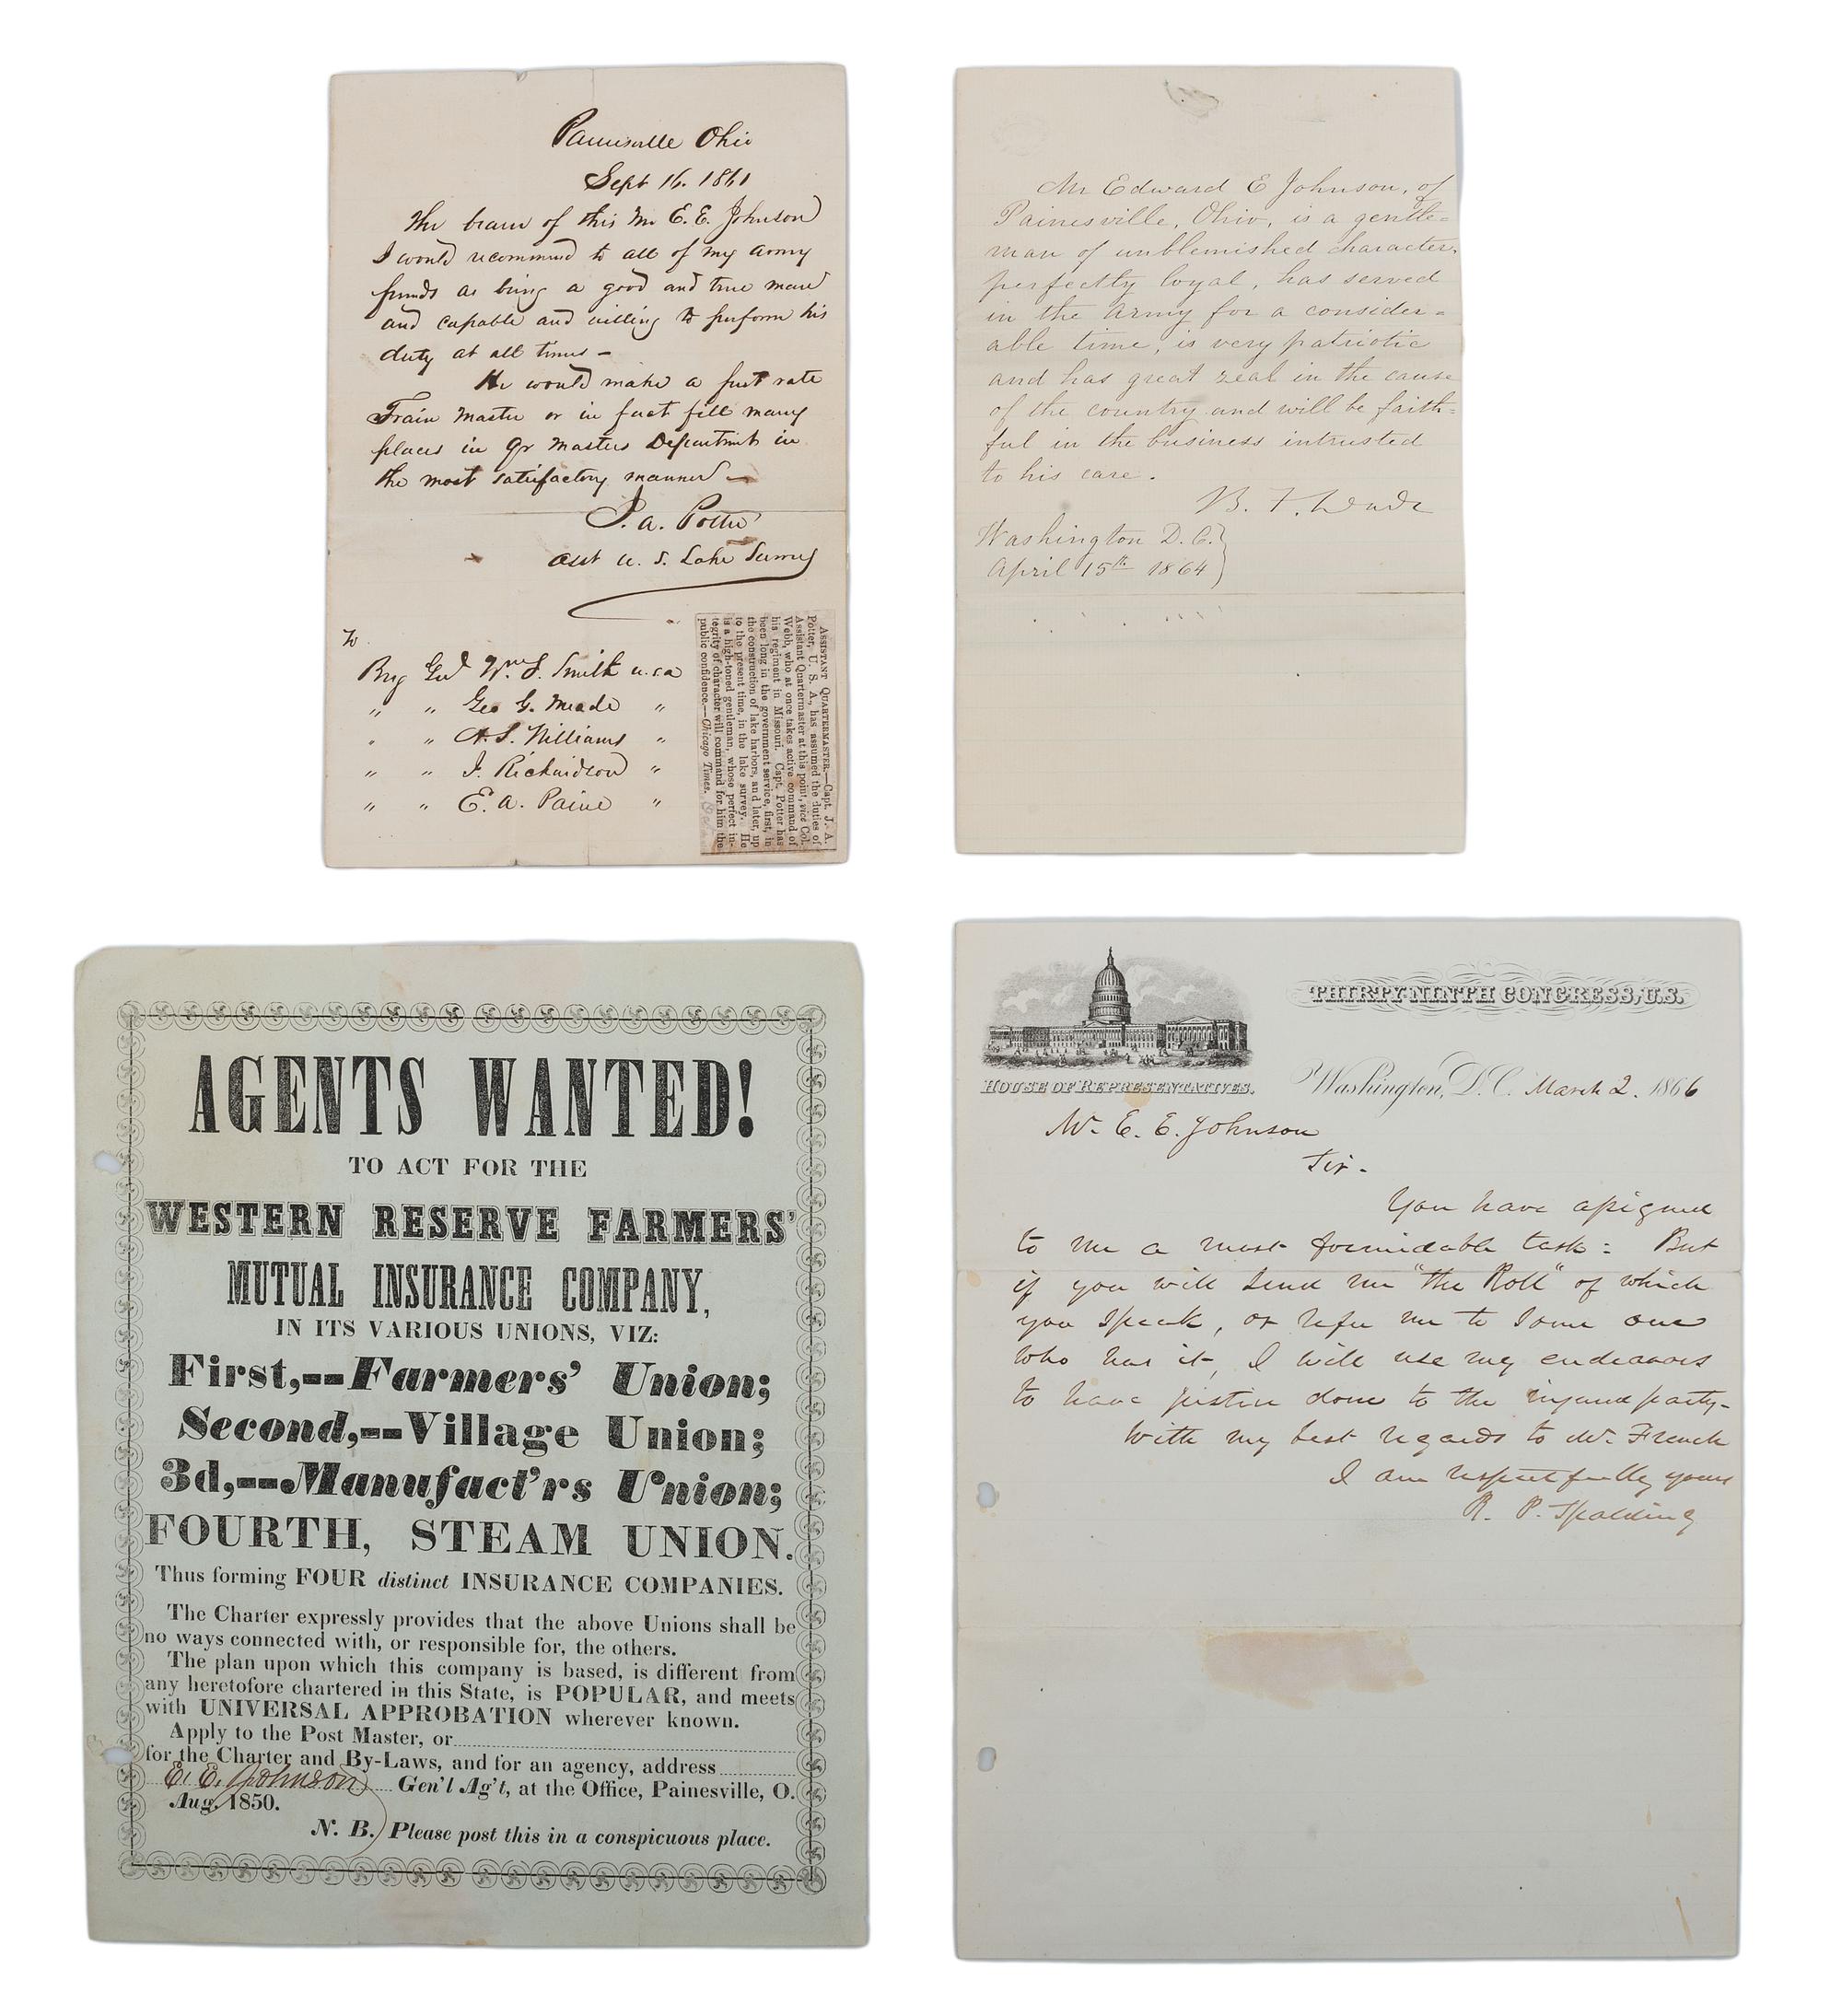 Painesville Ohio
Sept 16. 1861
The bearer of this Mr E. E. Johnson
I would recommend to all of my army
friends as being a good and true man
and capable and willing to perform his
duty at all times –
He would make a first rate
Train Master or in fact fill many
places in Qr Masters Department in
the most satisfactory manner –
J. A. Potter
Asst U. S. Lake Survey
To
Brig Genl Wm. S. Smith U.S.A
" " Geo G. Meade "
" " A. S. Williams "
" " I. Richardson "
" " E. A. Paine "
ASSISTANT QUARTERMASTER.—Capt. J. A.
Potter, U. S. A., has assumed the duties of
Assistant Quartermaster at this point, vice Col.
Webb, who at once takes active command of
his regiment in Missouri. Capt. Potter has
been long in the government service, first, in
the construction of lake harbors, and later, up
to the present time, in the lake survey. He
is a high-toned gentleman, whose perfect in-
tegrity of character will command for him the
public confidence.—Chicago Times.
Mr Edward E Johnson, of
Painesville, Ohio, is a gentle=
man of unblemished character,
perfectly loyal, has served
in the Army for a consider=
able time, is very patriotic
and has great zeal in the cause
of the country and will be faith=
ful in the business intrusted
to his care.
B. F. Wade
Washington D. C.}
April 15th 1864}
AGENTS WANTED!
TO ACT FOR THE
WESTERN RESERVE FARMERS'
MUTUAL INSURANCE COMPANY,
IN ITS VARIOUS UNIONS, VIZ:
First,--Farmers' Union;
Second,--Village Union;
3d,--Manufact'rs Union;
FOURTH, STEAM UNION.
Thus forming FOUR distinct INSURANCE COMPANIES.
The Charter expressly provides that the above Unions shall be
no ways connected with, or responsible for, the others.
The plan upon which this company is based, is different from
any heretofore chartered in this State, is POPULAR, and meets
with UNIVERSAL APPROBATION wherever known.
Apply to the Post Master, or
for the Charter and By-Laws, and for an agency, address
E. E. Johnson Gen'l Ag't, at the Office, Painesville, O.
Aug. 1850.
N. B. Please post this in a conspicuous place.
HOUSE OF REPRESENTATIVES.
THIRTY NINTH CONGRESS, U.S.
Washington, D.C. March 2. 1866
Mr. E. E. Johnson
Sir.
You have assigned
to me a most formidable task: But
if you will send me "the Roll" of which
you speak, or refer me to some one
who has it, I will use my endeavors
to have justice done to the injured party.
With my best regards to Mr. French
I am respectfully yours
R. P. Spalding